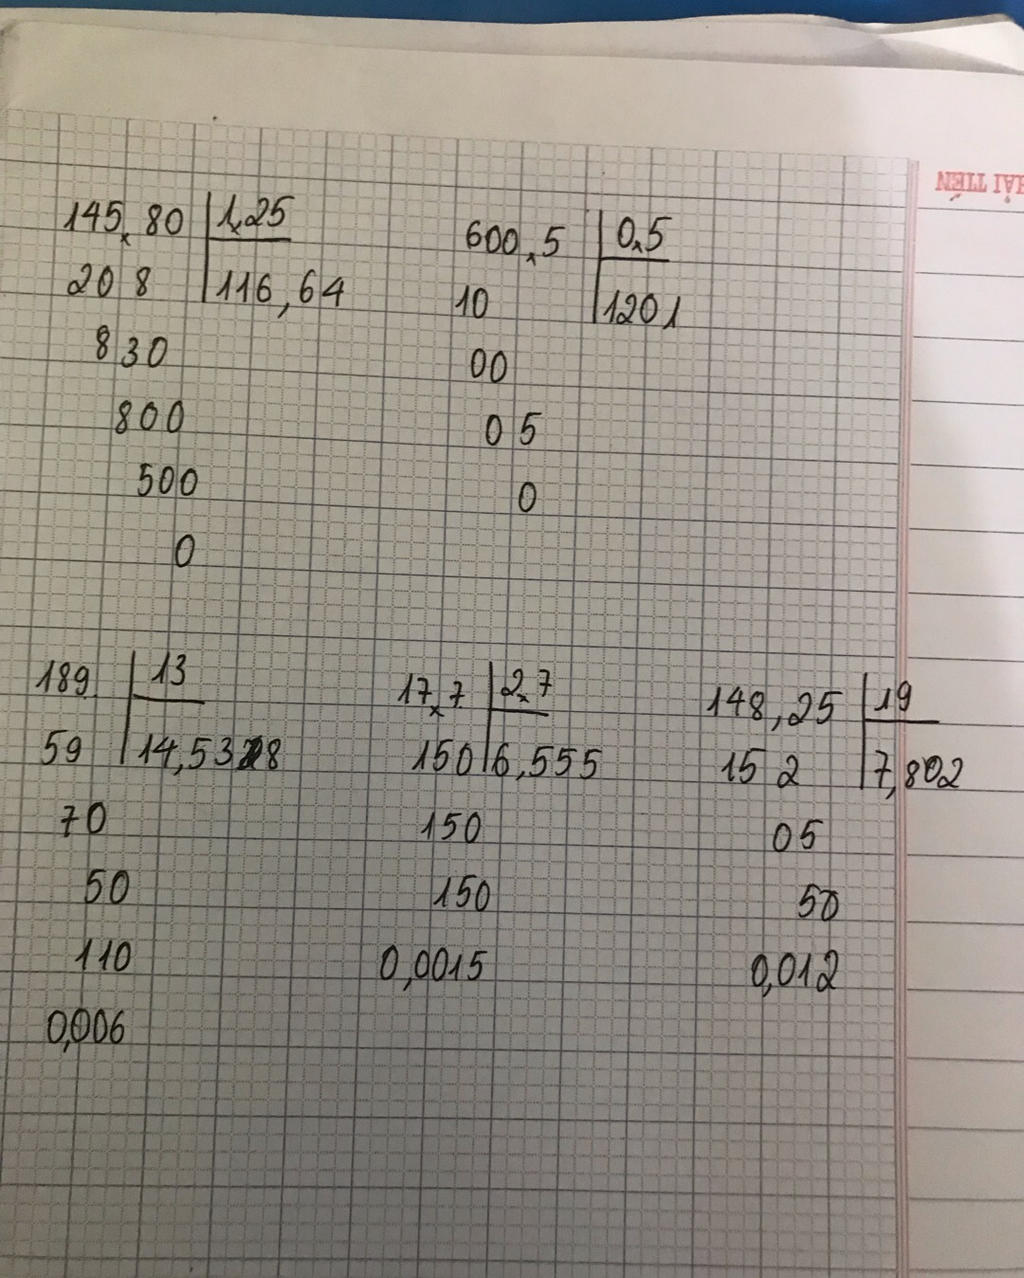 145,80 1,25
20 8 116,64
830
800
500
0
600,5 0,5
10 1201
00
05
0
189 13
59 14,538
70
50
110
0,006
17,7 2,7
150 6,555
150
150
0,0015
148,25 19
15 2 7,802
05
50
0,012
HẢI TIẾN